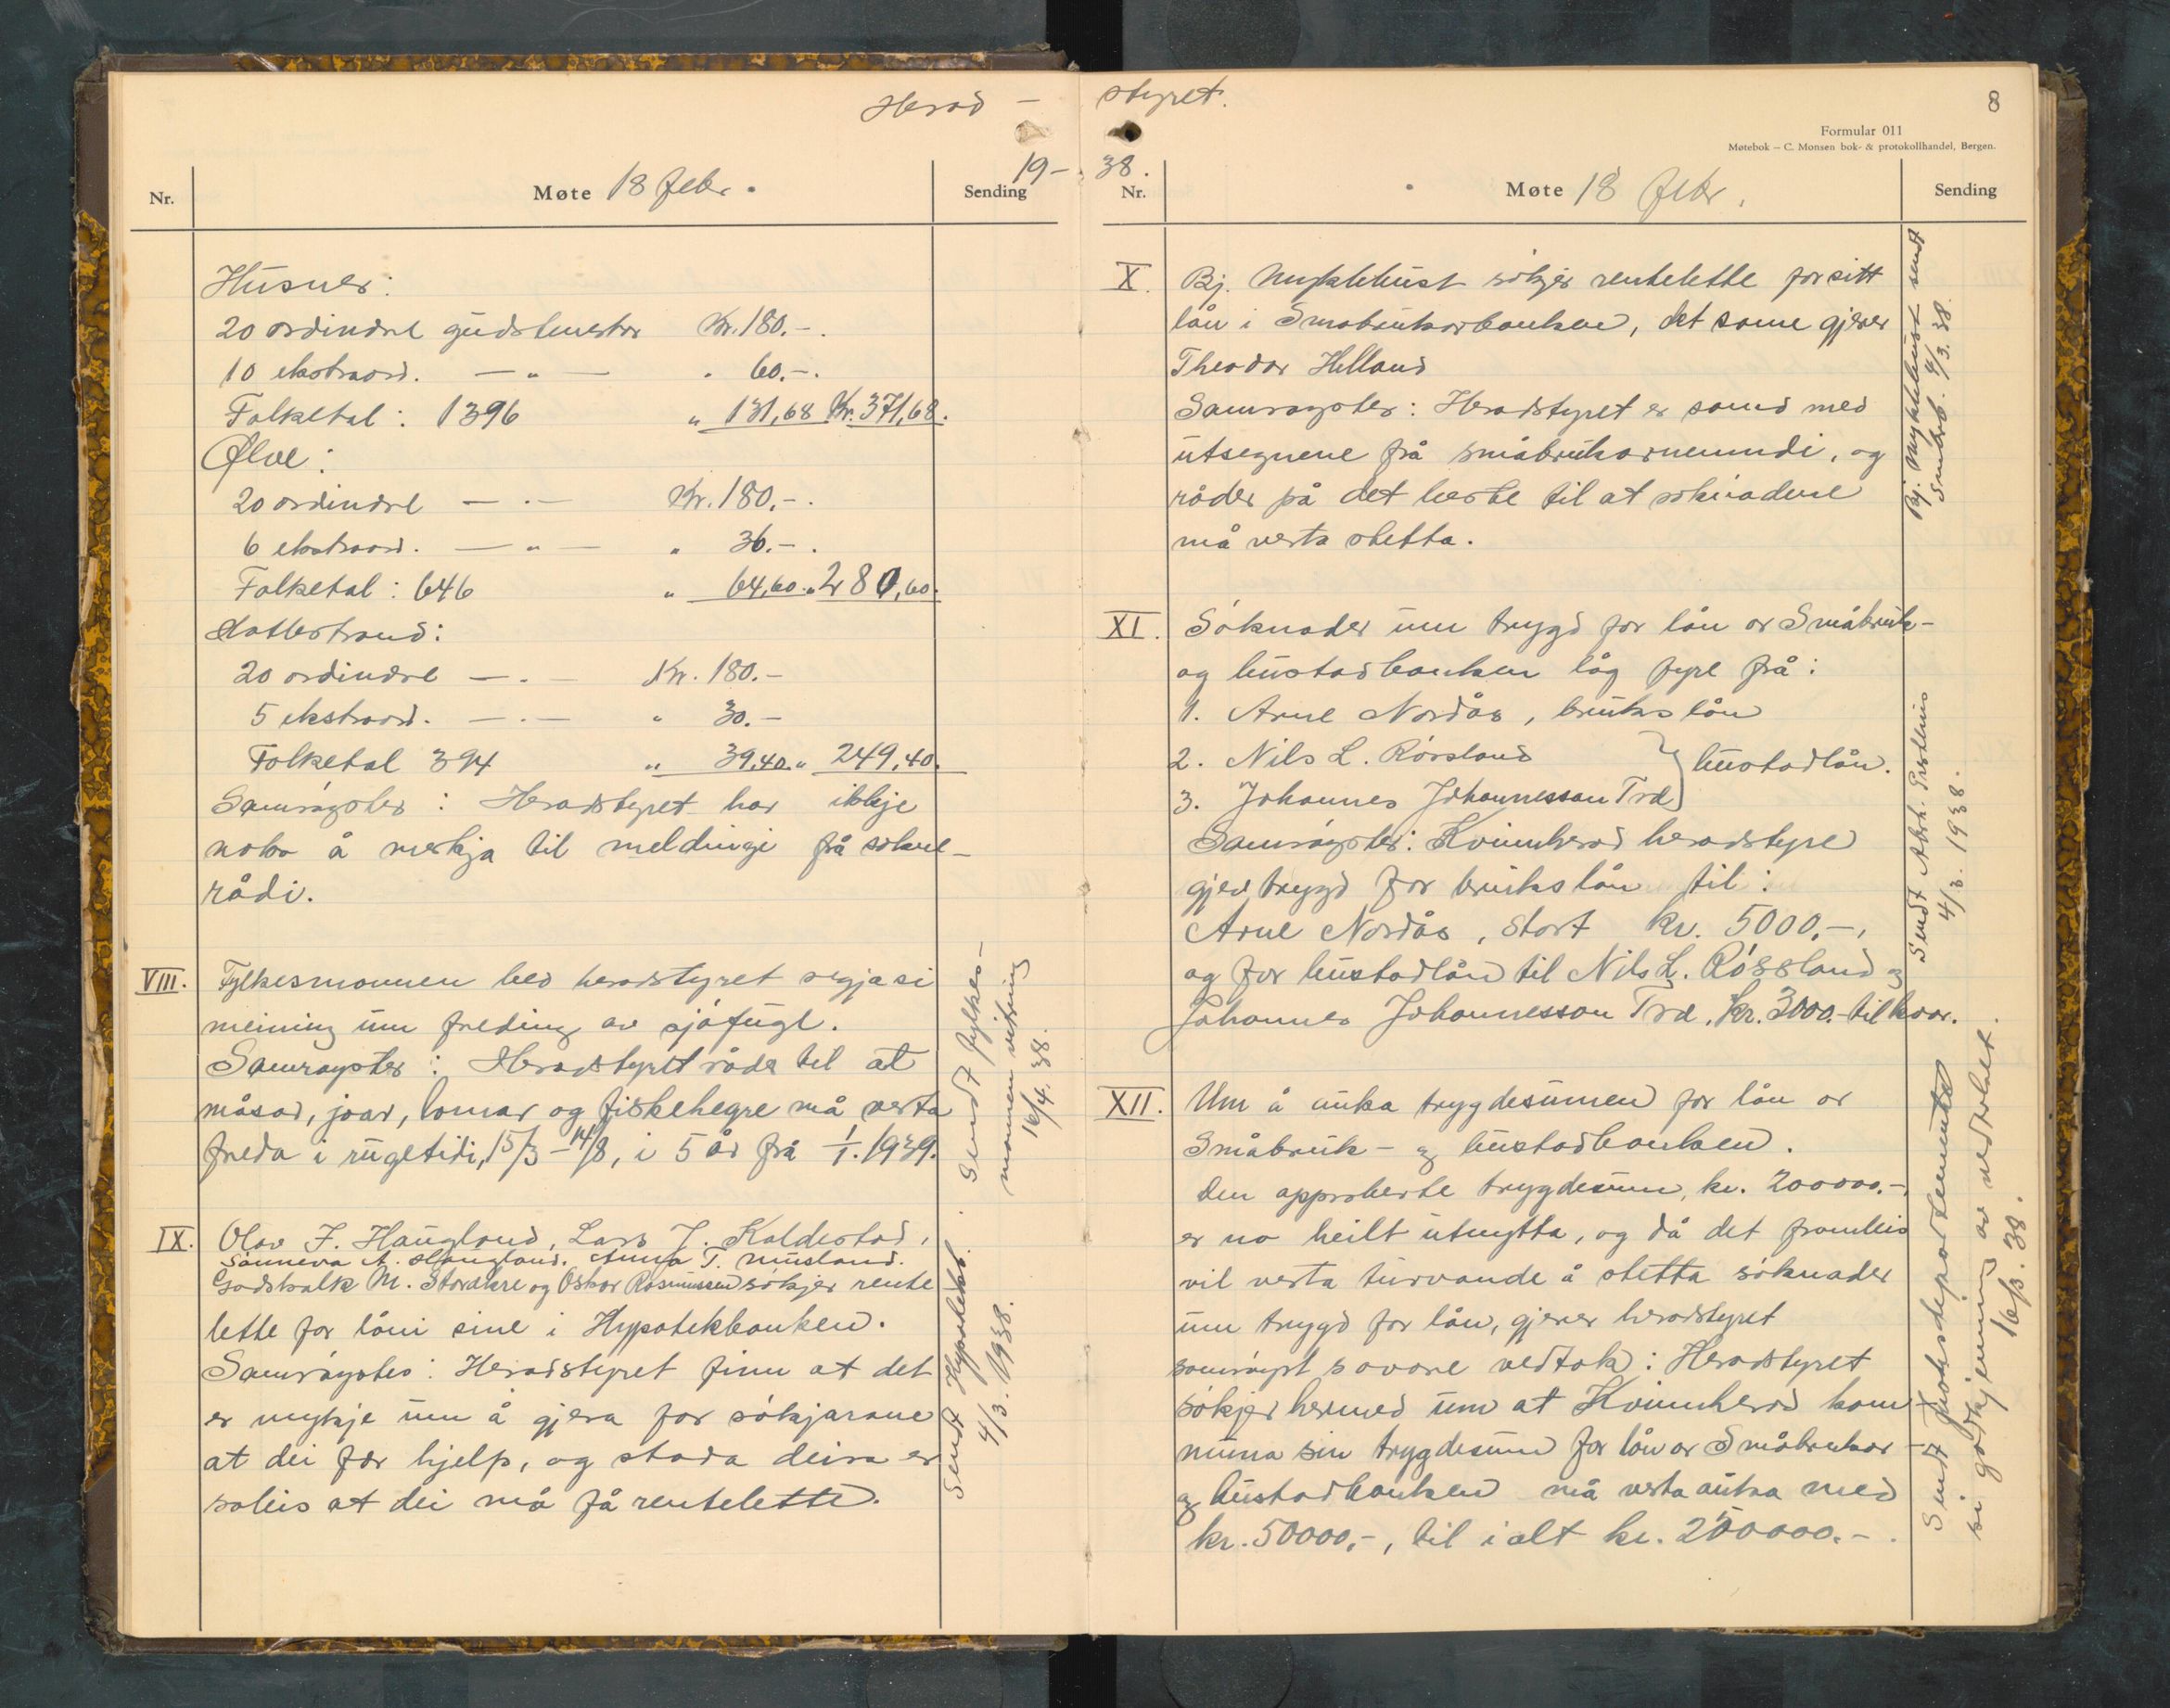 Herad - styret.
19- 38.
8
Formular 011
Møtebok – C. Monsen bok- & protokollhandel, Bergen.
Nr.
Møte 18 febr.
Sending
Husnes:
20 ordinære gudstenester Kr. 180.-.
10 ekstraord. — " — " 60.-.
Folketal: 1396 " 131,68 Kr. 371,68.
Ølve:
20 ordinære — " — Kr. 180.-.
6 ekstraord. — " — " 36.-.
Folketal: 646 " 64,60. " 280,60.
Hatlestrand:
20 ordinære — " — Kr. 180.-
5 ekstraord. — " — " 30.-
Folketal 394 " 39,40. " 249,40.
Samrøystes: Heradstyret har ikkje
noko å merkja til meldingi frå sokne-
rådi.
VIII. Fylkesmannen bed heradstyret segja si
meining um freding av sjøfugl.
Samrøystes: Heradstyret råder til at
måsar, joar, lomar og fiskehegre må verta
freda i rugetidi, 15/3 - 14/8, i 5 år frå 1/1. 1939.
Sendt fylkes-
mannen utskrift
16/4. 38.
IX. Olav J. Haugland, Lars J. Kaldestad,
Sunneva A. Haugland. Anna T. Musland.
Godskalk M. Storakre og Oskar Rasmussen søkjer rente
lette for låni sine i Hypotekbanken.
Samrøystes: Heradstyret finn at det
er mykje um å gjera for søkjarane
at dei får hjelp, og stoda deira er
soleis at dei må få rentelette.
Sendt Hypotekb.
4/3. 1938.
Nr.
Møte 18 febr.
Sending
X. Bj. Myklebust søkjer rentelette for sitt
lån i Småbrukarbanken, det same gjerer
Theodor Helland
Samrøystes: Heradstyret er samd med
utsegnene frå småbrukarnemndi, og
råder på det beste til at søknadene
må verta stetta.
Bj. Myklebust sendt
Småbrb. 4/3. 38.
XI. Søknader um trygd for lån or Småbruk-
og bustadbanken låg fyre frå:
1. Arne Nordås, brukslån
2. Nils L. Røssland
3. Johannes Johannesson Træ } bustadlån.
Samrøystes: Kvinnherad heradstyre
gjev trygd for brukslån til:
Arne Nordås, stort kr. 5000.-,
og for bustadlån til Nils L. Røssland og
Johannes Johannesson Træ, kr. 3000.- til kvar.
Sendt Abrh. Prestnus
4/3. 1938.
XII. Um å auka trygdesumen for lån or
Småbruk- og bustadbanken.
Den approberte trygdesum, kr. 200000.-
er no heilt utnytta, og då det framleis
vil verta turvande å stetta søknader
um trygd for lån, gjerer heradstyret
samrøystt sovore vedtak: Heradstyret
søkjer hermed um at Kvinnherad kom
muna sin trygdesum for lån or Småbrukar-
og bustadbanken må verta auka med
kr. 50000,-, til i alt kr. 250000.-.
Sendt Finansdepartementet
til godkjenning av vedtaket.
16/3. 38.